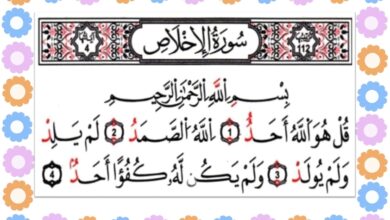 آياتها ٤ سُورَةُ الإِخْلَاصِ ١١٢
بِسْمِ اللَّهِ الرَّحْمَٰنِ الرَّحِيمِ
قُلْ هُوَ اللَّهُ أَحَدٌ ١ اللَّهُ الصَّمَدُ ٢ لَمْ يَلِدْ
وَلَمْ يُولَدْ ٣ وَلَمْ يَكُن لَّهُ كُفُوًا أَحَدٌ ٤